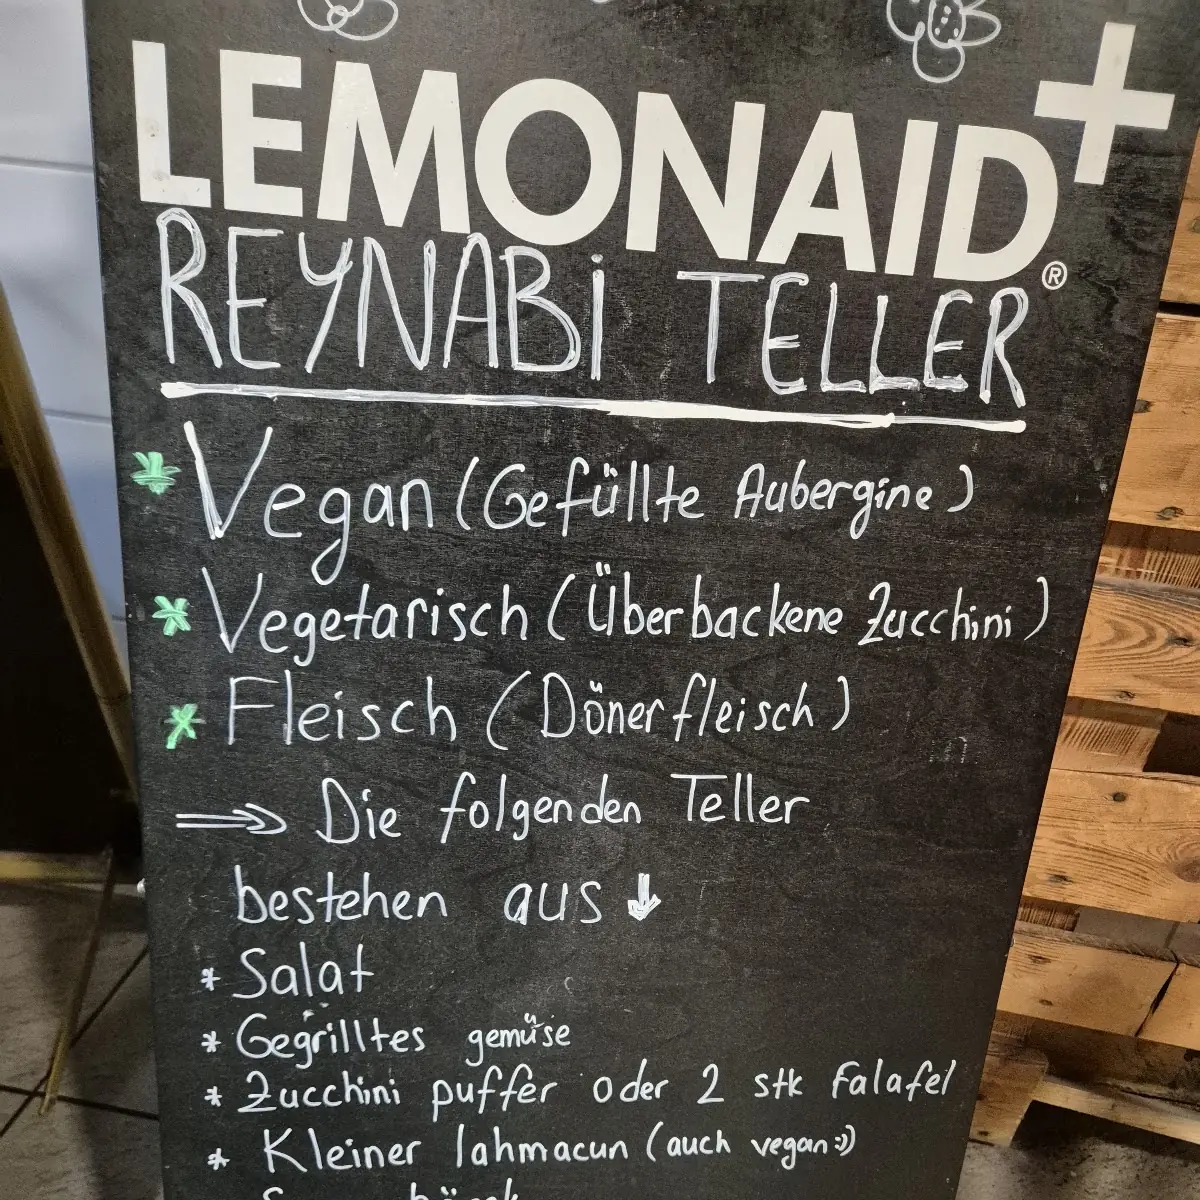 LEMONAID+®
REYNABİ TELLER
* Vegan (Gefüllte Aubergine)
* Vegetarisch (Überbackene Zucchini)
* Fleisch (Dönerfleisch)
⇒ Die folgenden Teller
bestehen aus ↓
* Salat
* Gegrilltes gemüse
* Zucchini puffer oder 2 stk Falafel
* Kleiner lahmacun (auch vegan :))